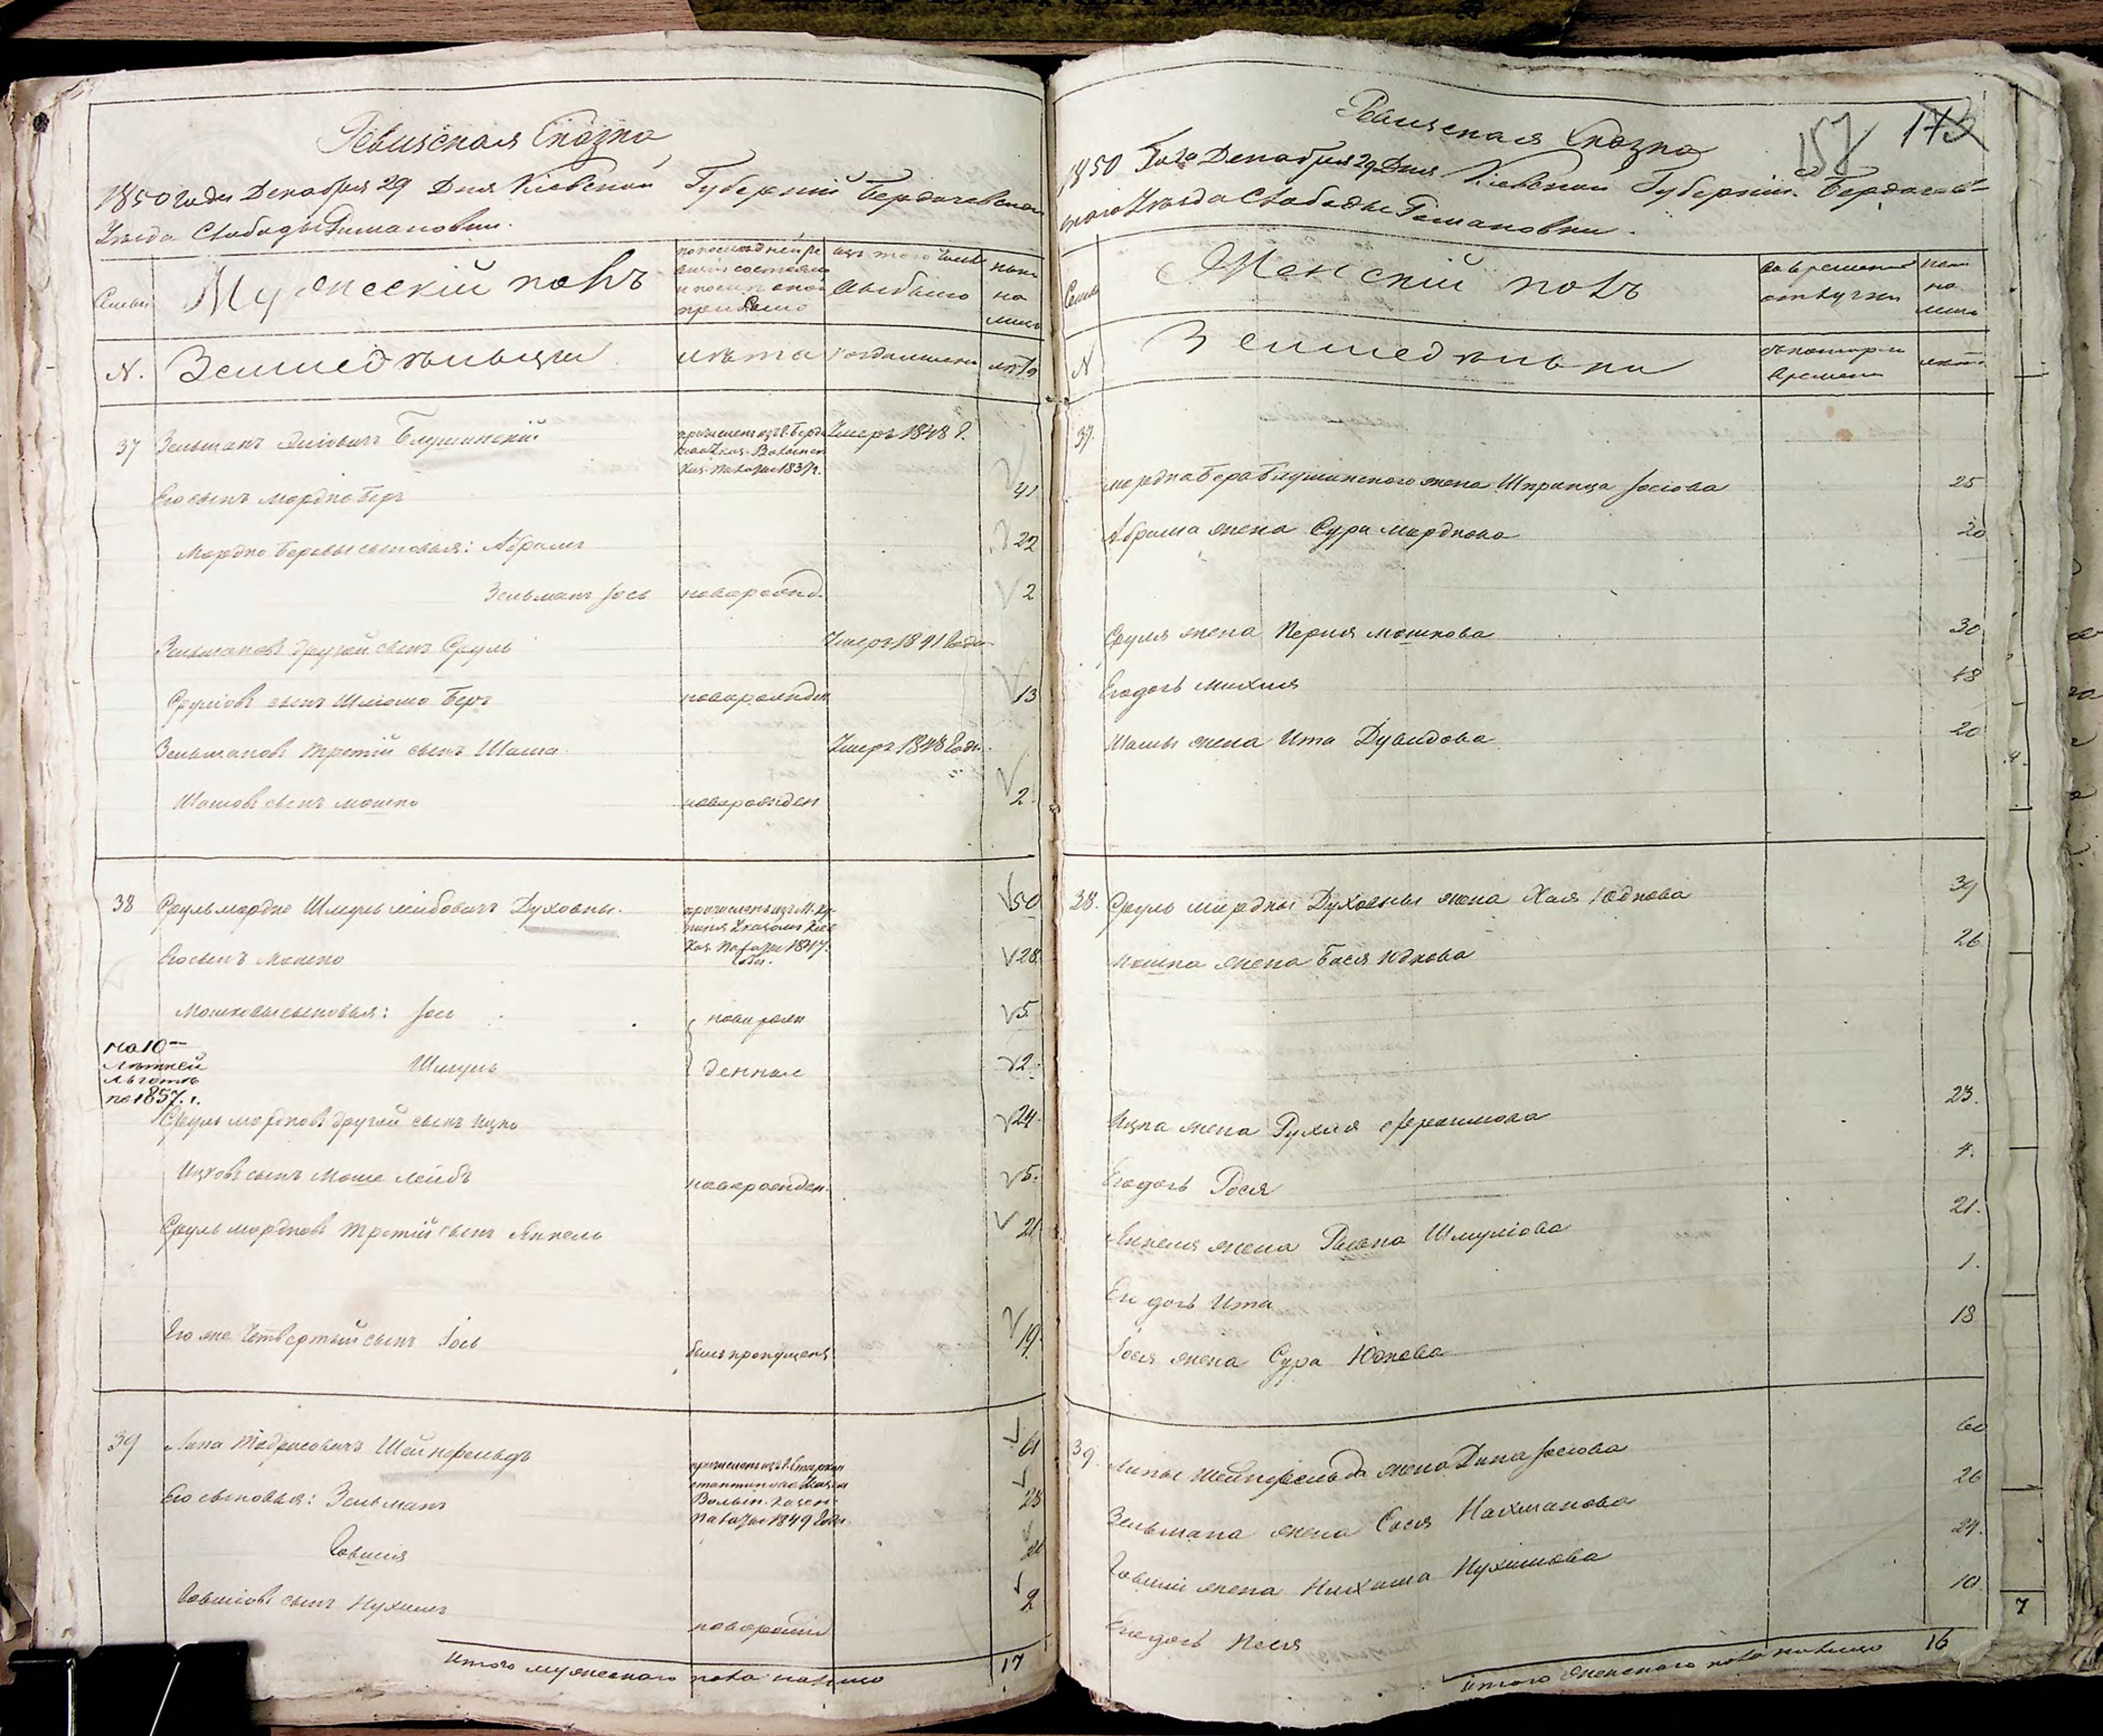 Ревизская Сказка
1850 Года Декабря 29 Дня Киевской Губерніи Бердичевскаго
Уезда Слободы Романовки.
Семьи
Мужескій полъ
по последней ре
визіи состояло
и после оной
прибыло
изъ того числа
выбыло
ныне
на
лицо
N.
Земледельцы
лета
когда именно
лета
37 Зельманъ Блушинскій
причисленъ изъ г. Берд
Каз. Палаты 1837 г.
Умеръ 1848 г.
Его сынъ Мордко Беръ
41
Мордко Беровы сыновья: Абрамъ
22
Зельманъ Іось
новорожд.
2
Зельмановъ другой сынъ Сруль
Умеръ 1841 года
Срулевъ сынъ Шлиома Беръ
новорожден
13
Зельмановъ третій сынъ Шама
Умеръ 1848 года.
Шамовъ сынъ Мошко
новорожден
2
38 Сруль Мордко Шмуль Лейбовичъ Духовны.
Каз. Палаты 1847.
годы.
50
Его сынъ Мошко
28
Мошковы сыновья: Іось
новорож
5
на 10
летней
льготе
по 1857. г.
Шмуль
денные
2
Сруль Мордковъ другой сынъ Ицко
24.
Ицковъ сынъ Моше Лейбъ
новорожден.
5.
Сруль Мордковъ третій сынъ Янкель
21
Его же Четвертый сынъ Іось
былъ пропущенъ
19.
39 Липа Тодросовичъ Шейнфельдъ
причисленъ изъ г. Старокон
стантинова
Волын. Казен.
Палаты 1849 года.
61
Его сыновья: Зельманъ
Говшія
Говшіовъ сынъ Нухимъ
новорожд
2
Итого мужескаго пола налицо
17
Ревизская Сказка
157 173
1850 Года Декабря 29 Дня Кіевской Губерніи. Бердичевс
каго Уезда Слободы Романовки.
Семьи
Женскій полъ
во временной
отлучки
ныне
на
лицо
N
Земледелки
съ котораго
времени
лета
37.
Мордка Бера Блушинского жена Шпринца Іосіова
25
Абрама жена Сура Мордкова
20
Сруля жена Перля Мошкова
30
Его дочь Михля
18
Шамы жена Ита Дувидова
20
38. Сруль Мордки Духовны жена Хая Юдкова
39
Мошка жена Бася Юдкова
26
Ицка жена Рухля Фроимова
23.
Его дочь Рося
4.
Янкеля жена Шмуліова
21.
Его дочь Ита
1.
Іося жена Сура Юдкова
18
39. Липы Шейнфельда жена Дина Іосіова
60
Зельмана жена Сося Нахманова
26
Говшіи жена Нихама Нухимова
24.
Его дочь Песя
10
7
Итого женскаго пола налицо
16